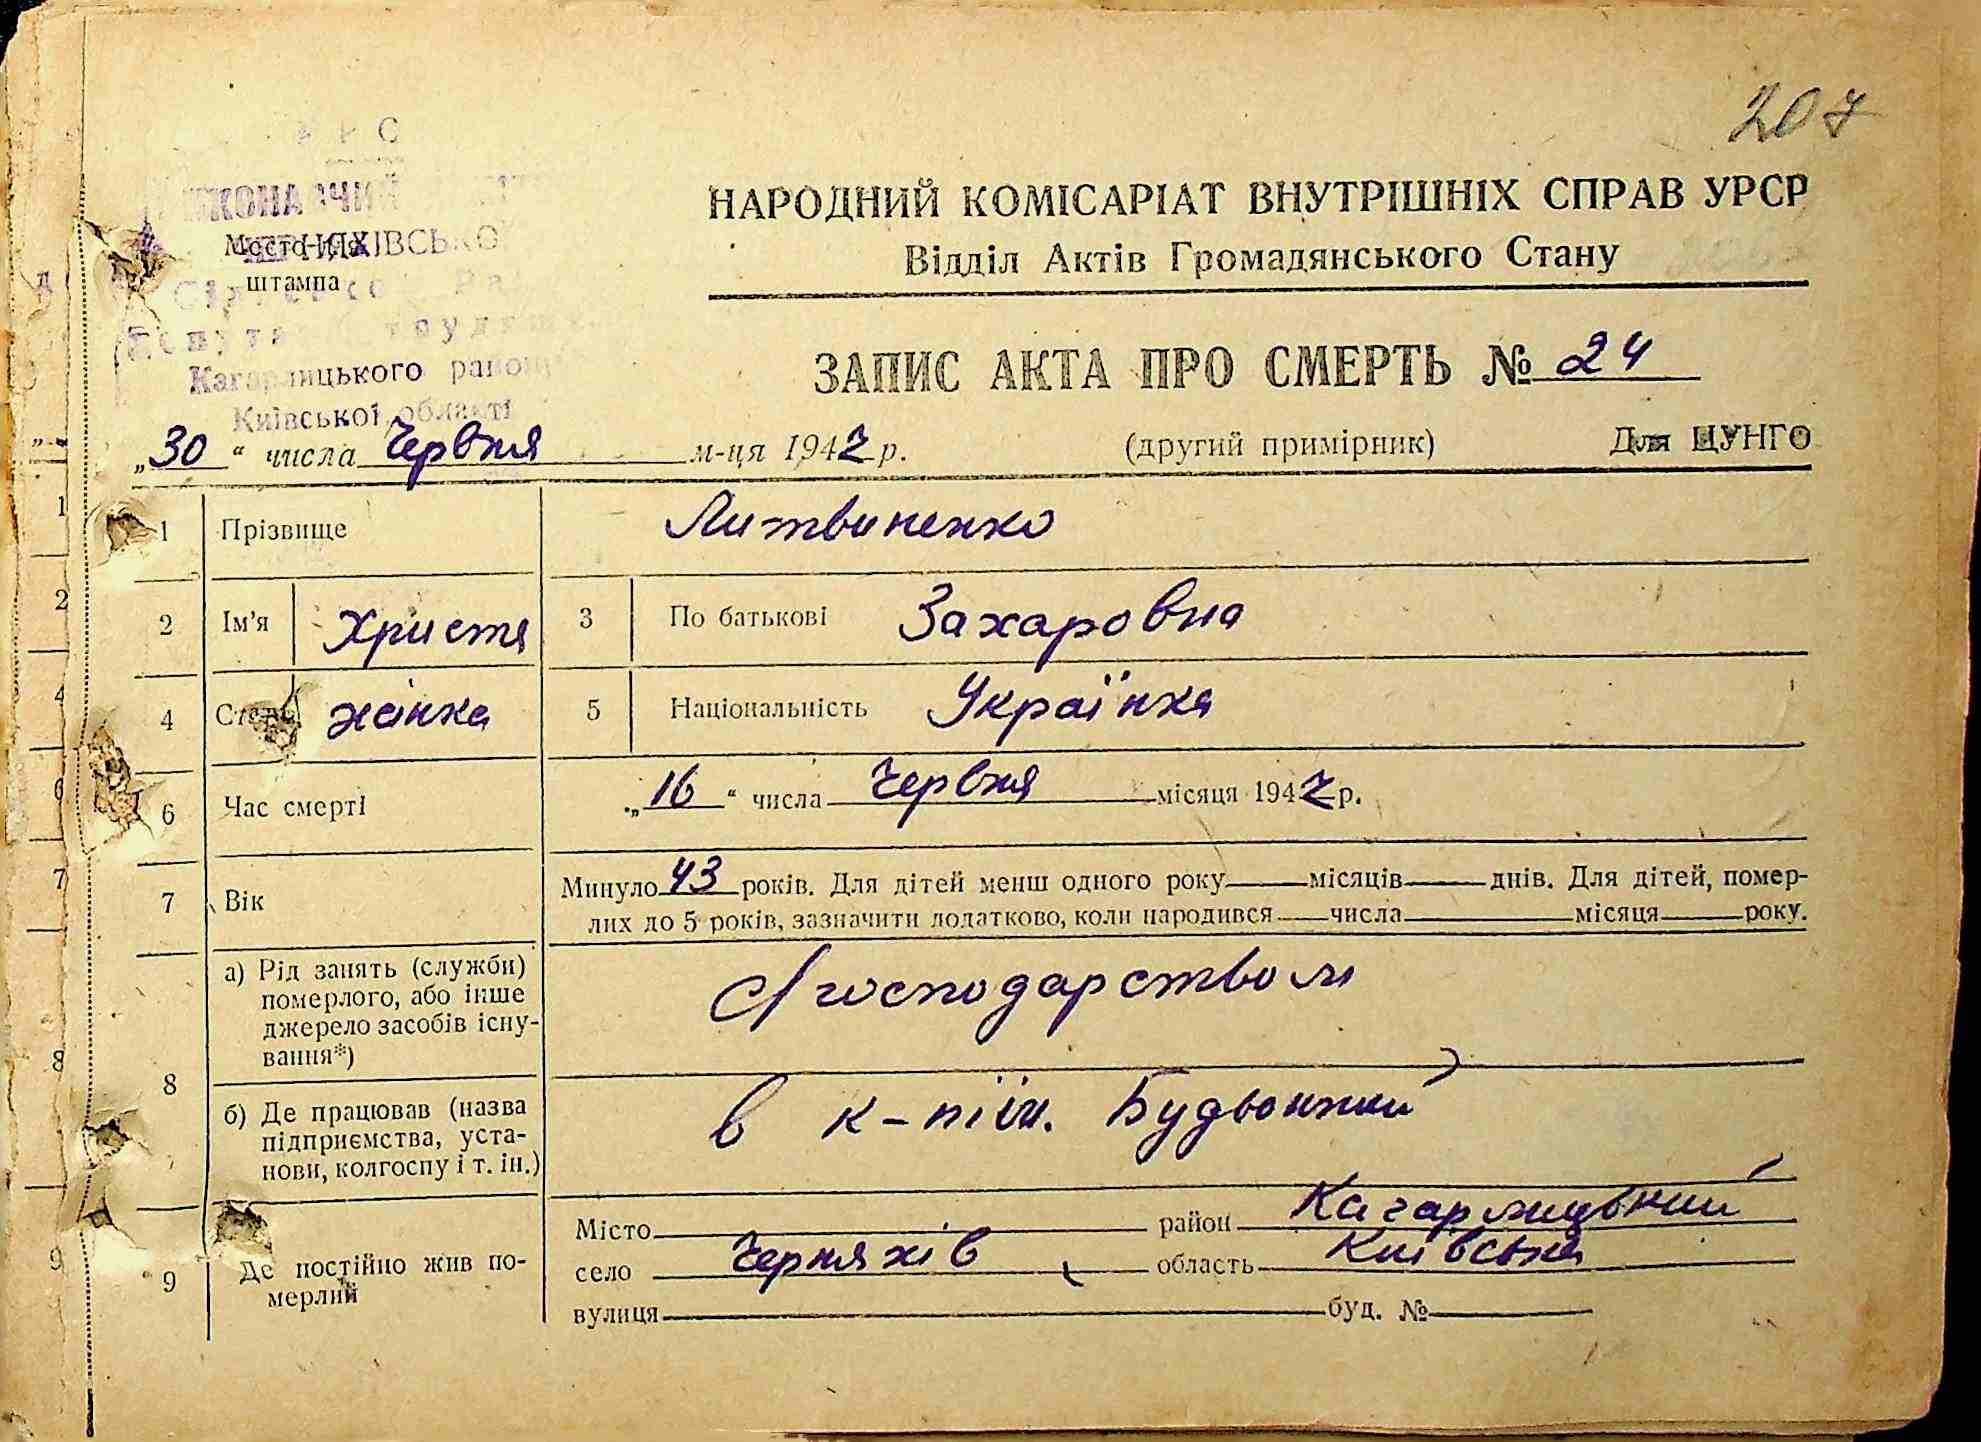 207
НАРОДНИЙ КОМІСАРІАТ ВНУТРІШНІХ СПРАВ УРСР
Відділ Актів Громадянського Стану
ЧЕРНЯХІВСЬКО
Место для
штампа
Кагарлицького району
Київської області
ЗАПИС АКТА ПРО СМЕРТЬ № 24
„30“ числа Червня м-ця 1947 р. (другий примірник) Для ЦУНГО
1 Прізвище Литвиненко
2 Ім'я Христя 3 По батькові Захаровна
4 Стать жінка 5 Національність Українка
6 Час смерті „16“ числа Червня місяця 1947 р.
7 Вік Минуло 43 років. Для дітей менш одного року місяців днів. Для дітей, помер-
лих до 5 років, зазначити додатково, коли народився числа місяця року.
8 а) Рід занять (служби)
померлого, або інше
джерело засобів існу-
вання*)
С/господарством
б) Де працював (назва
підприємства, уста-
нови, колгоспу і т. ін.)
в к-пі ім. Будьонний
9 Де постійно жив по-
мерлий
Місто район Кагарлицький
село Черняхів область Київська
вулиця буд. №